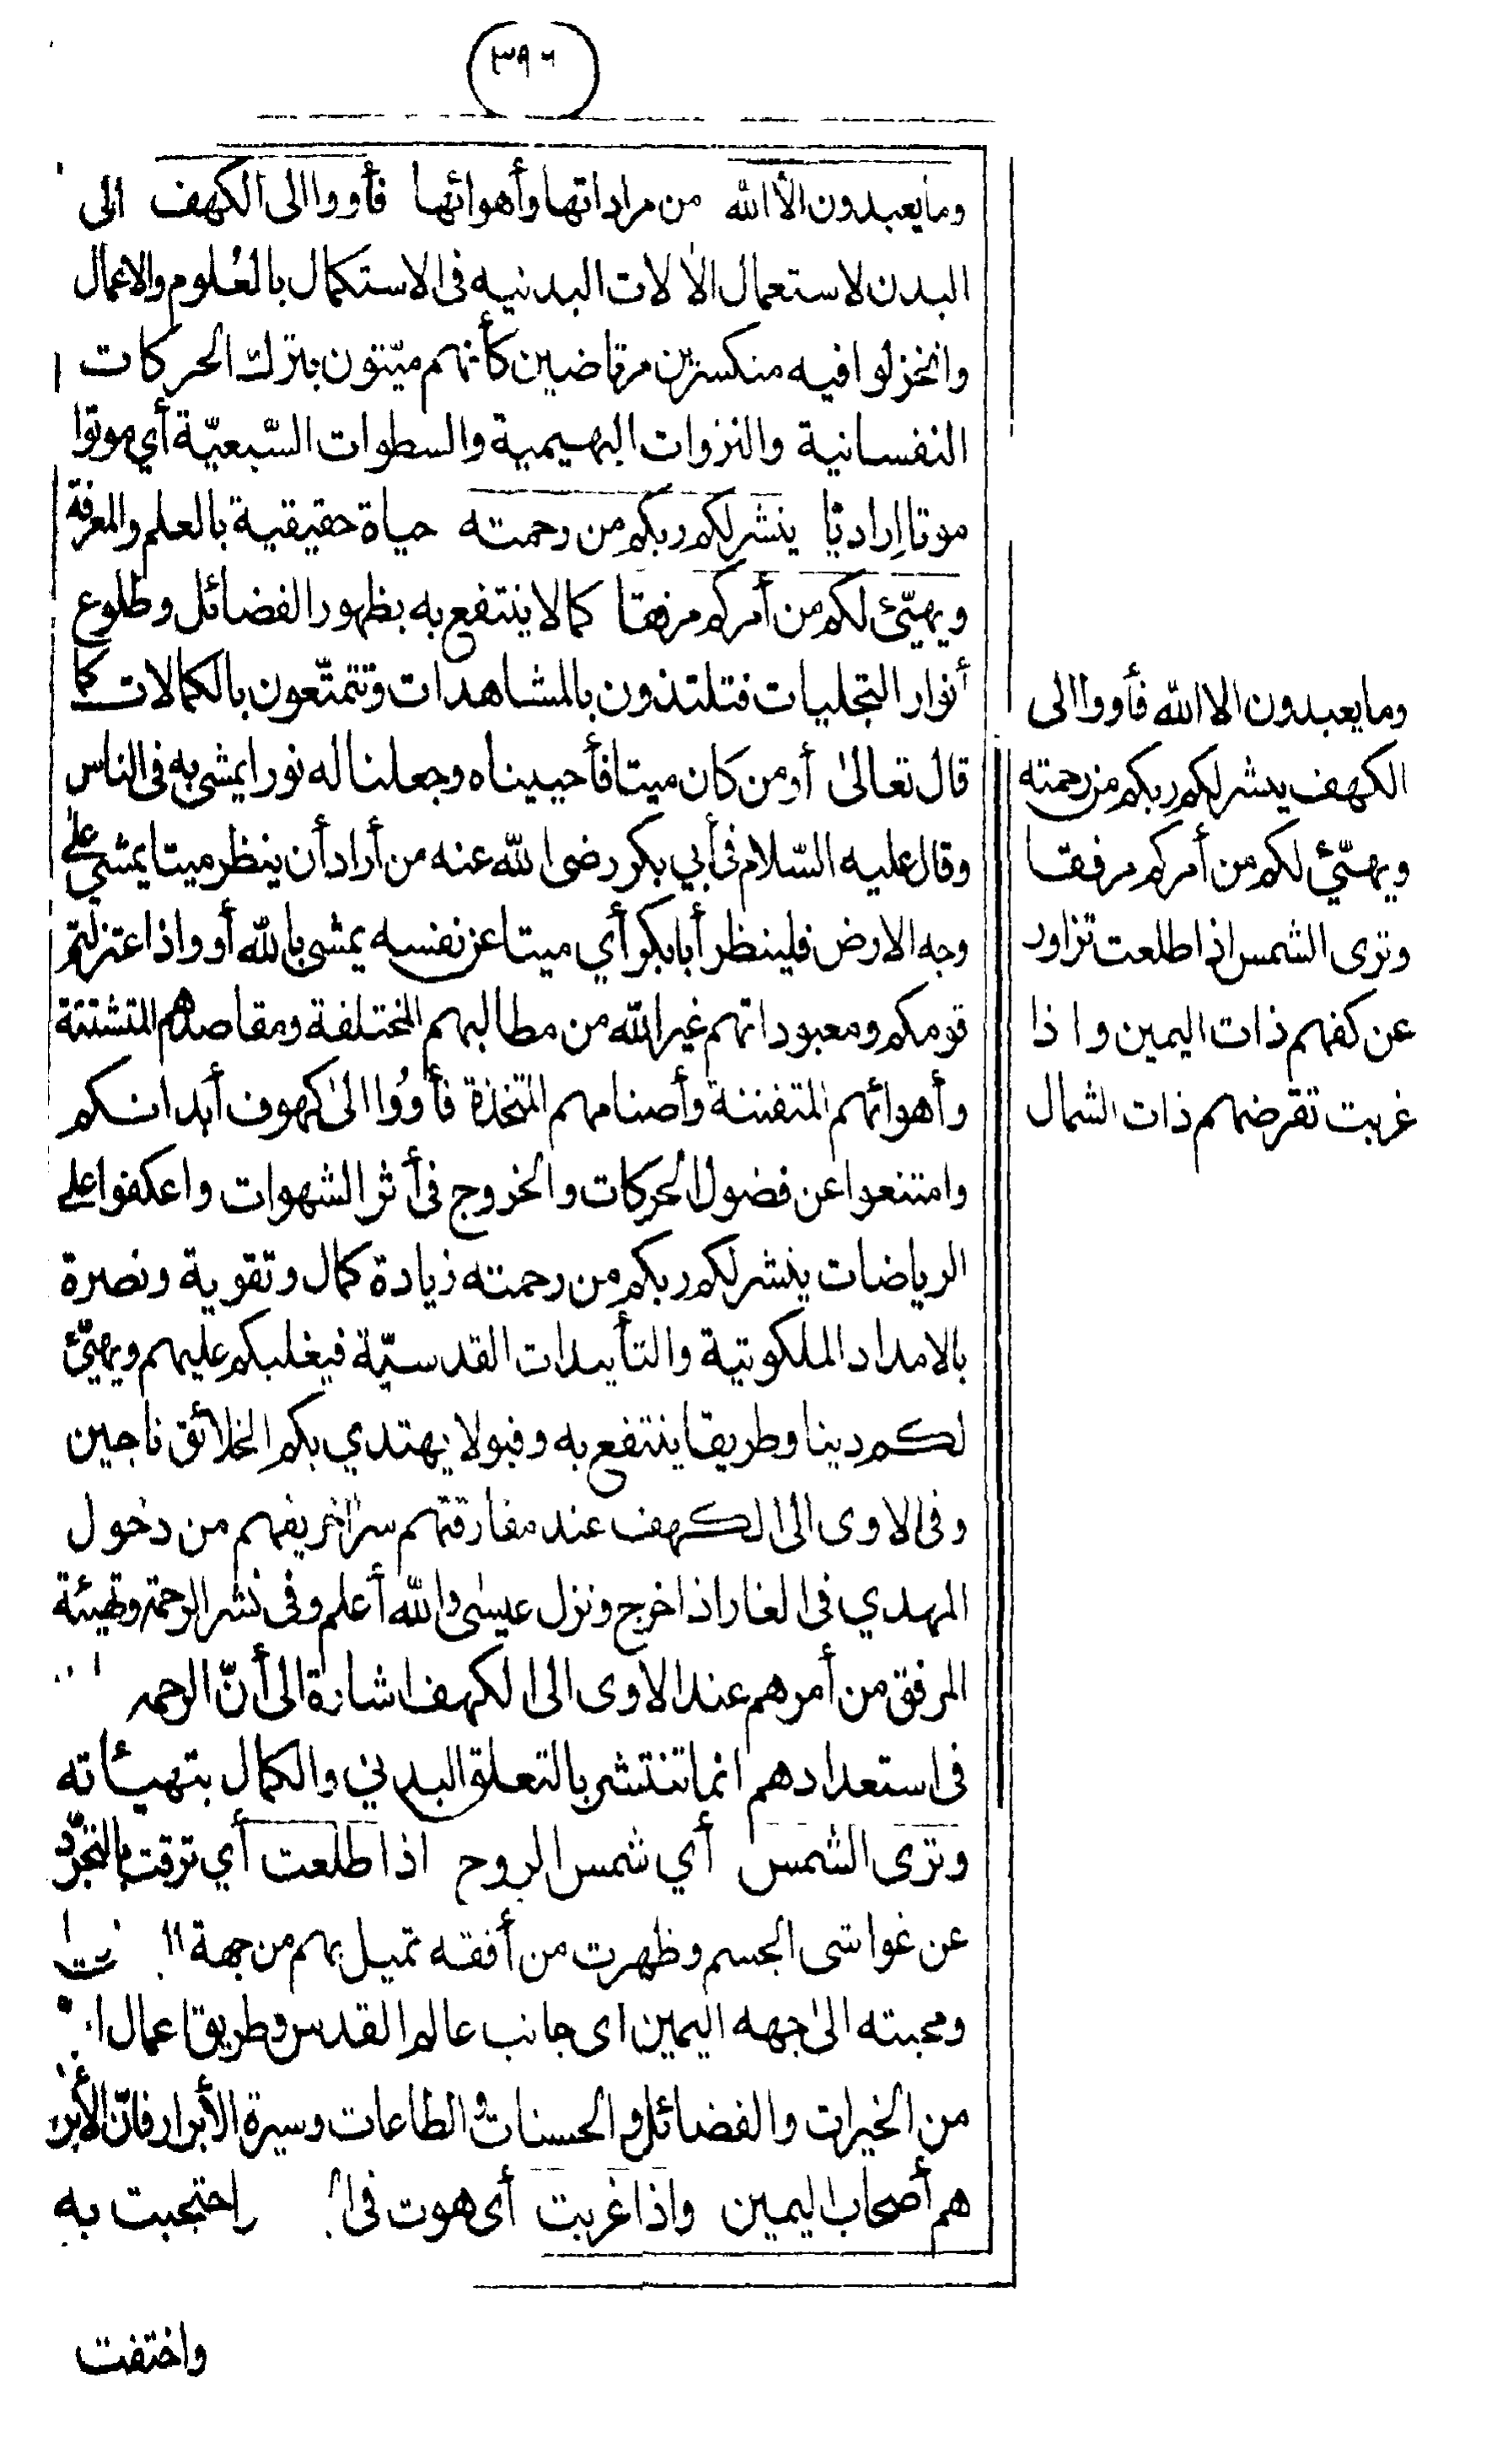 ٣٩٠
وما يعبدون الا الله من مراداتها وأهوائها فأووا الى الكهف الى
البدن لاستعمال الآلات البدنيه فى الاستكمال بالعُلوم والاعمال
وانخزلوا فيه منكسرين مرتاضين كأنهم ميّتون بترك الحركات
النفسانية والنزوات البهيمية والسطوات السّبعيّة أي موتوا
موتا اراديّا ينشر لكم ربكم من رحمته حياة حقيقية بالعلم والمعرفة
ويهيّئ لكم من أمركم مرفقا كمالا ينتفع به بظهور الفضائل وطلوع
أنوار التجليات فتلتذون بالمشاهدات وتتمتّعون بالكمالات كما
قال تعالى أو من كان ميتا فأحييناه وجعلنا له نورا يمشى به فى الناس
وقال عليه السّلام فى أبي بكر رضى الله عنه من أراد أن ينظر ميتا يمشي على
وجه الارض فلينظر أبا بكر أي ميتا عن نفسه يمشى بالله أو واذ اعتزلتم
قومكم ومعبوداتهم غير الله من مطالبهم المختلفة ومقاصدهم المتشتتة
وأهوائهم المتفننة وأصنامهم المتخذة فأوُوا الى كهوف أبدانكم
وامتنعوا عن فضول الحركات والخروج فى أثر الشهوات واعكفوا على
الرياضات ينشر لكم ربكم من رحمته زيادة كمال وتقوية ونصرة
بالامداد الملكوتية والتأييدات القدسيّة فيغلبكم عليهم ويهيّئ
لكم دينا وطريقا ينتفع به وقبولا يهتدي بكم الخلائق ناجين
وفى الاوى الى الكهف عند مفارقتهم سرّ آخر يفهم من دخول
المهدي فى الغار اذا خرج ونزل عيسى والله أعلم وفى نشر الرحمة وتهيئة
المرفق من أمرهم عند الاوى الى الكهف اشارة الى أنّ الرحمه
فى استعدادهم انما تنتشر بالتعلق البدني والكمال بتهيئاته
وترى الشمس أي شمس الروح اذا طلعت أي ترقت بالتجرّد
عن غواشى الجسم وظهرت من أفقه تميل بهم من جهة
ومحبته الى جهه اليمين اى جانب عالم القدس وطريق اعمال
من الخيرات والفضائل والحسنات والطاعات وسيرة الأبرار فانّ الأبرار
هم أصحاب اليمين واذا غربت أى هوت فى احتجبت به
واختفت
وما يعبدون الا الله فأووا الى
الكهف ينشر لكم ربكم من رحمته
ويهيّئ لكم من أمركم مرفقا
وترى الشمس اذا طلعت تزاور
عن كهفهم ذات اليمين واذا
غربت تقرضهم ذات الشمال